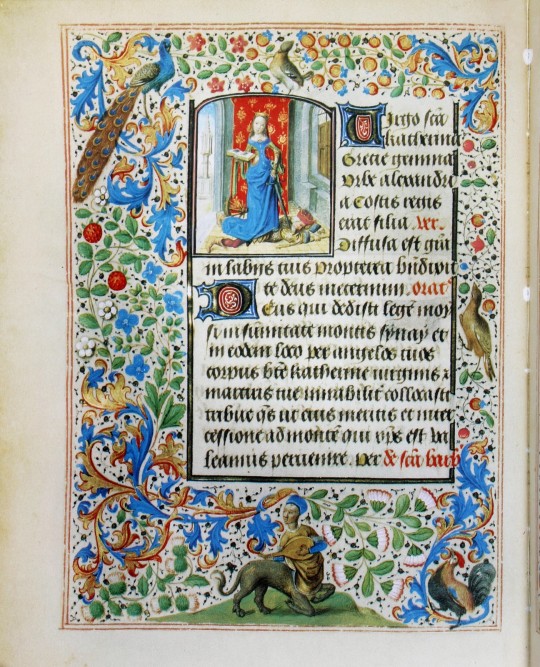 Uirgo scā
katherina
Grecie gemma
Vrbe alexandri
a Costis regis
erat filia. ver.
Diffusa est grā
in labijs tuis Propterea bndixit
te deus in eternum. orat
Deus qui dedisti legē moy
si in summitate montis synay et
in eodem loco per angelos tuos
corpus bte katherine virginis ⁊
martiris tue mirabilit collocasti
tribue qs ut eius meritis et inter
cessione ad montē qui xps est va
leamus pervenire. Per de scā barb